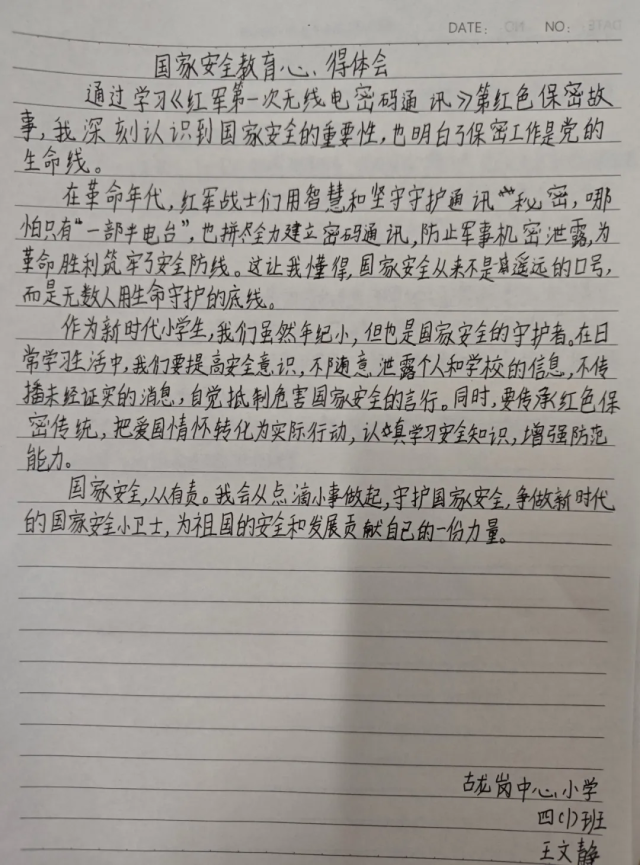 DATE: NO:
国家安全教育心得体会
通过学习《红军第一次无线电密码通讯》第红色保密故
事,我深刻认识到国家安全的重要性,也明白了保密工作是党的
生命线。
在革命年代,红军战士们用智慧和坚守守护通讯秘密,哪
怕只有“一部半电台”,也拼尽全力建立密码通讯,防止军事机密泄露,为
革命胜利筑牢了安全防线。这让我懂得,国家安全从来不是遥远的口号,
而是无数人用生命守护的底线。
作为新时代小学生,我们虽然年纪小,但也是国家安全的守护者。在日
常学习生活中,我们要提高安全意识,不随意泄露个人和学校的信息,不传
播未经证实的消息,自觉抵制危害国家安全的言行。同时,要传承红色保
密传统,把爱国情怀转化为实际行动,认真学习安全知识,增强防范
能力。
国家安全,人人有责。我会从点滴小事做起,守护国家安全,争做新时代
的国家安全小卫士,为祖国的安全和发展贡献自己的一份力量。
古龙岗中心小学
四(1)班
王文静